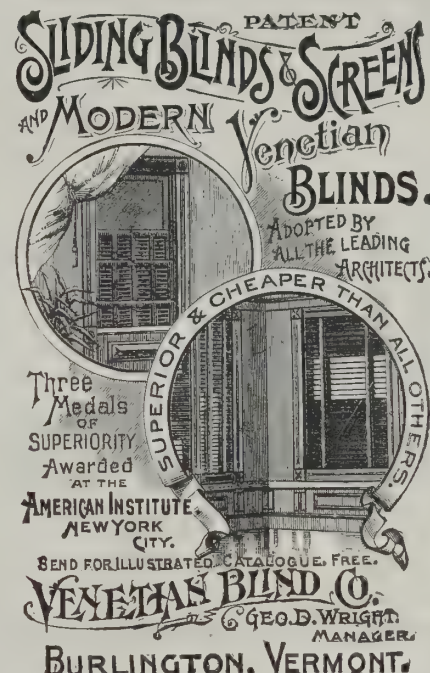 PATENT
SLIDING BLINDS & SCREENS
AND MODERN Venetian
BLINDS.
ADOPTED BY
ALL THE LEADING
ARCHITECTS.
SUPERIOR & CHEAPER THAN ALL OTHERS.
Three
Medals
OF
SUPERIORITY
Awarded
AT THE
AMERICAN INSTITUTE
NEW YORK
CITY.
SEND FOR ILLUSTRATED CATALOGUE, FREE.
VENETIAN BLIND CO.
GEO. D. WRIGHT.
MANAGER.
BURLINGTON, VERMONT.